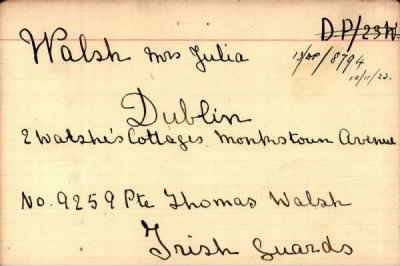 D.P/23W.
Walsh Mrs Julia
13/DP/8794
10/11/23.
Dublin
2 Walshe's Cottages Monkstown Avenue
No. 9259 Pte Thomas Walsh
Irish Guards